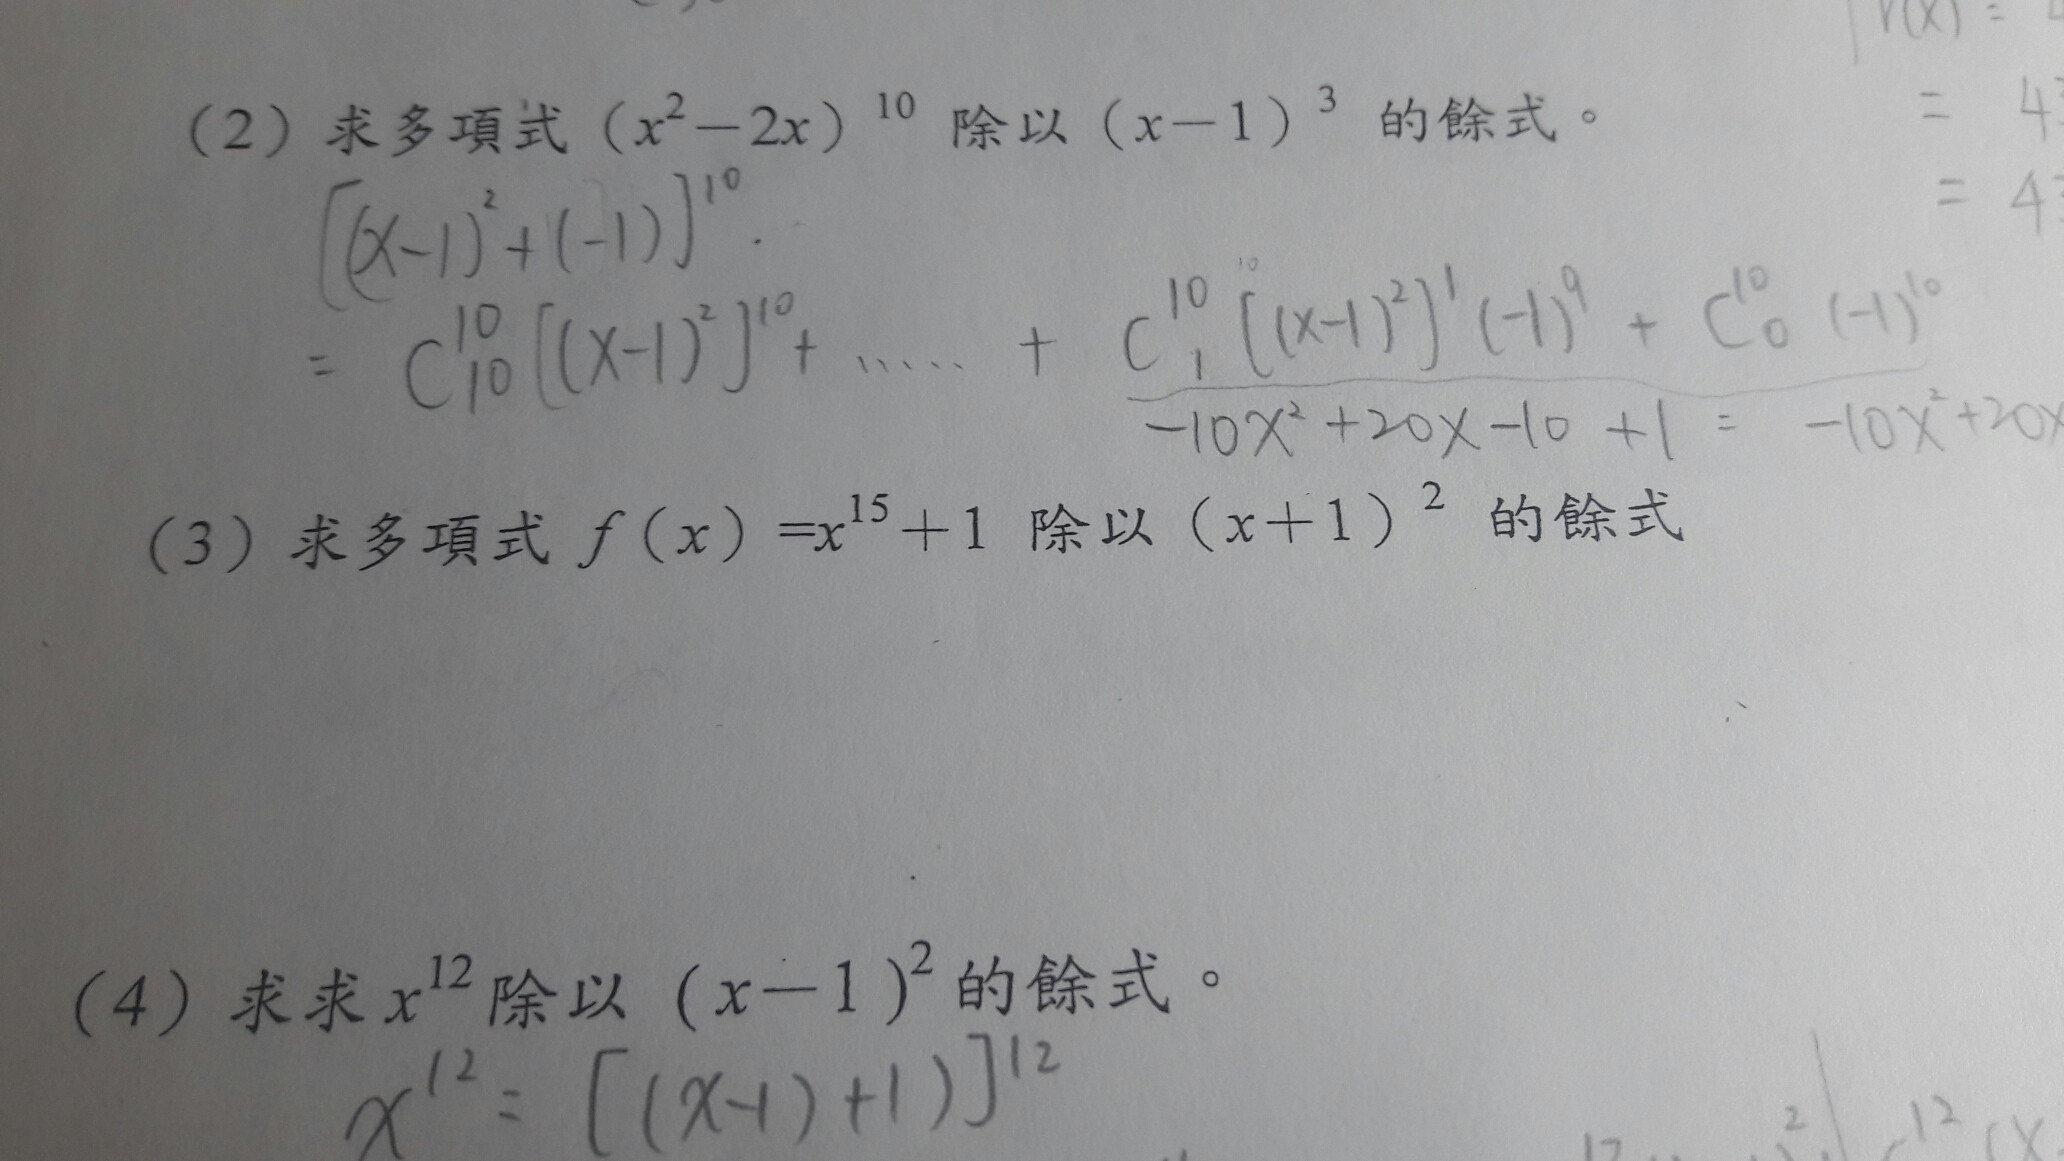 r(x) =
(2) 求多項式 (x²－2x)¹⁰ 除以 (x－1)³ 的餘式。
= 4
[(x-1)²+(-1)]¹⁰
= 4
= C¹⁰₁₀[(x-1)²]¹⁰+ ..... + C¹⁰₁[(x-1)²]¹(-1)⁹ + C¹⁰₀(-1)¹⁰
-10x²+20x-10 +1 = -10x²+20x
(3) 求多項式 f(x) =x¹⁵＋1 除以 (x＋1)² 的餘式
(4) 求求 x¹² 除以 (x－1)² 的餘式。
x¹² = [(x-1)+1)]¹²